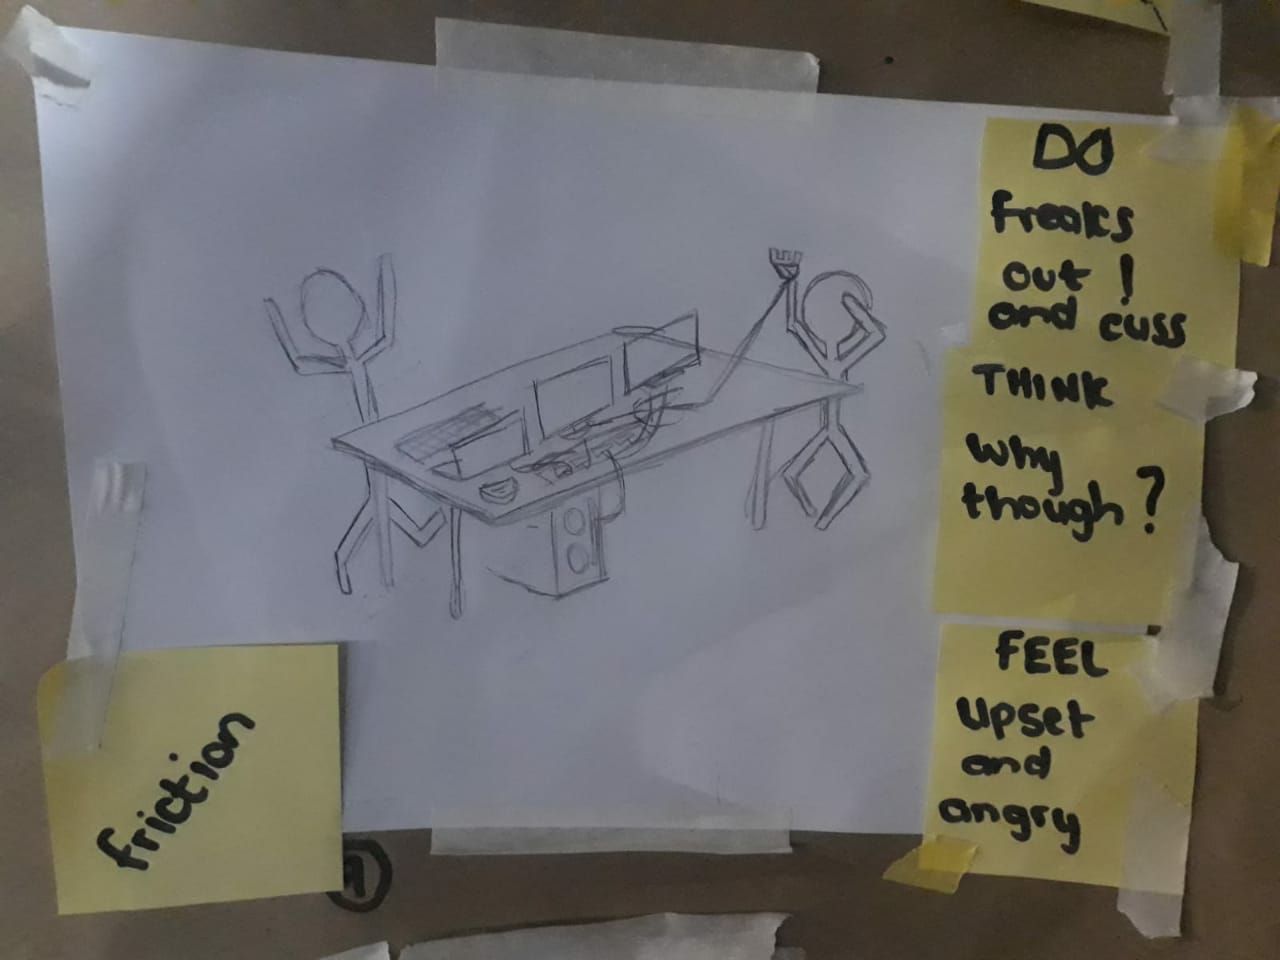 DO
freaks
out !
and cuss
THINK
Why
though ?
FEEL
Upset
and
angry
friction